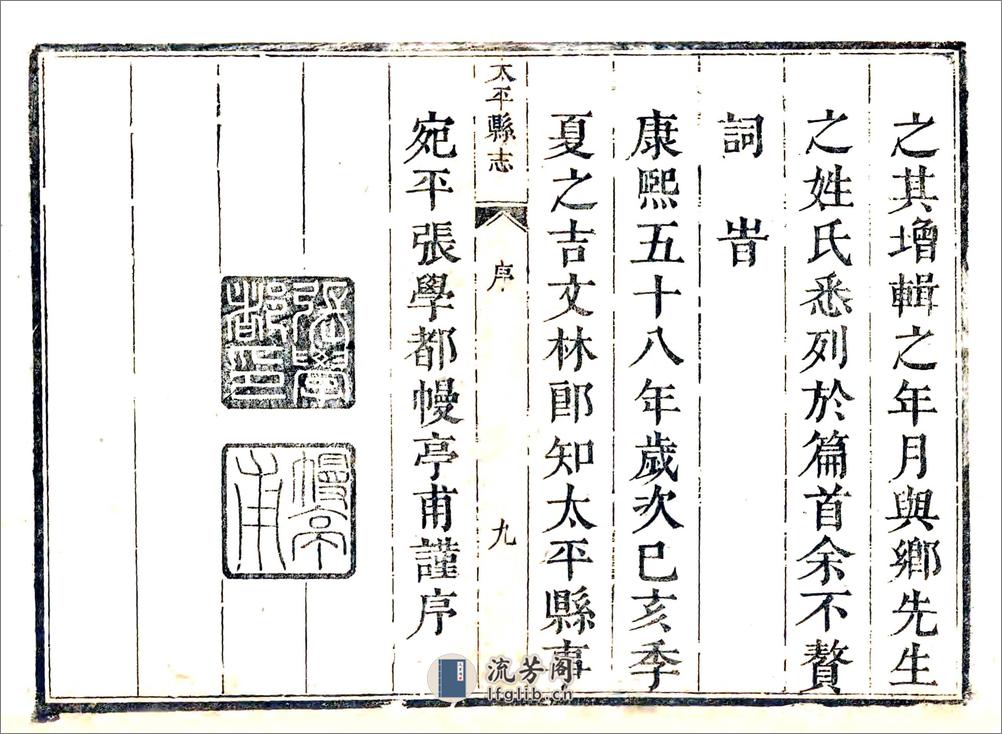 之其增輯之年月與鄉先生
之姓氏悉列於篇首余不贅
詞旹
康熙五十八年歲次己亥季
夏之吉文林郎知太平縣事
太平縣志
序
九
宛平張學都幔亭甫謹序
張學都印
幔亭甫
流芳阁
lfglib.cn